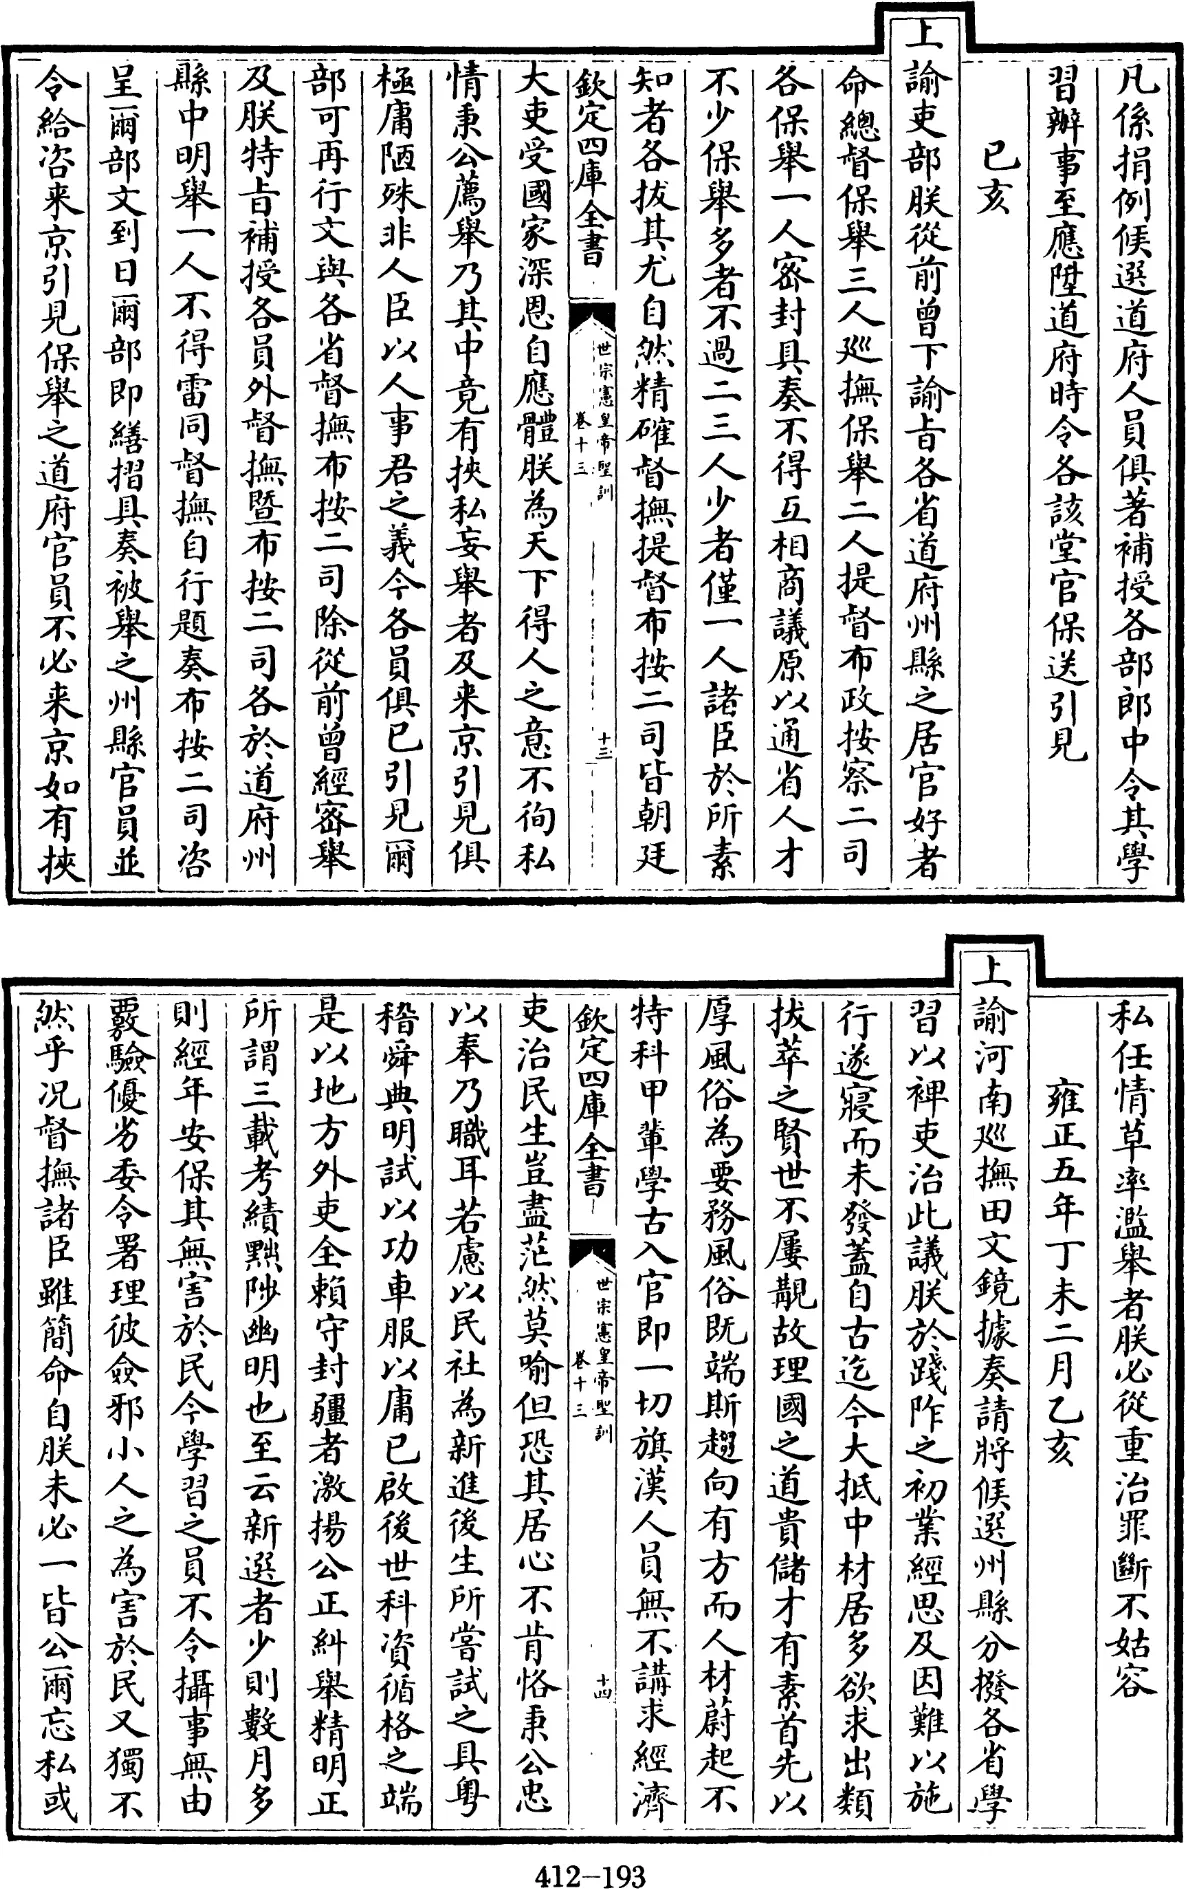 凡係捐例候選道府人員俱著補授各部郎中令其學
習辦事至應陞道府時令各該堂官保送引見
己亥
上諭吏部朕從前曾下諭旨各省道府州縣之居官好者
命總督保舉三人巡撫保舉二人提督布政按察二司
各保舉一人密封具奏不得互相商議原以通省人才
不少保舉多者不過二三人少者僅一人諸臣於所素
知者各拔其尤自然精確督撫提督布按二司皆朝廷
欽定四庫全書
世宗憲皇帝聖訓
卷十三
十三
大吏受國家深恩自應體朕為天下得人之意不徇私
情秉公薦舉乃其中竟有挾私妄舉者及来京引見俱
極庸陋殊非人臣以人事君之義今各員俱已引見爾
部可再行文與各省督撫布按二司除從前曾經密舉
及朕特旨補授各員外督撫暨布按二司各於道府州
縣中明舉一人不得雷同督撫自行題奏布按二司咨
呈爾部文到日爾部即繕摺具奏被舉之州縣官員並
令給咨来京引見保舉之道府官員不必来京如有挾
私任情草率濫舉者朕必從重治罪斷不姑容
雍正五年丁未二月乙亥
上諭河南巡撫田文鏡據奏請將候選州縣分撥各省學
習以裨吏治此議朕於踐阼之初業經思及因難以施
行遂寢而未發蓋自古迄今大抵中材居多欲求出類
拔萃之賢世不屢覯故理國之道貴儲才有素首先以
厚風俗為要務風俗既端斯趨向有方而人材蔚起不
特科甲軰學古入官即一切旗漢人員無不講求經濟
欽定四庫全書
世宗憲皇帝聖訓
卷十三
十四
吏治民生豈盡茫然莫喻但恐其居心不肯恪秉公忠
以奉乃職耳若慮以民社為新進後生所嘗試之具粤
稽舜典明試以功車服以庸已啟後世科資循格之端
是以地方外吏全賴守封疆者激揚公正糾舉精明正
所謂三載考績黜陟幽明也至云新選者少則數月多
則經年安保其無害於民今學習之員不令攝事無由
覈驗優劣委令署理彼僉邪小人之為害於民又獨不
然乎况督撫諸臣雖簡命自朕未必一皆公爾忘私或
412-193